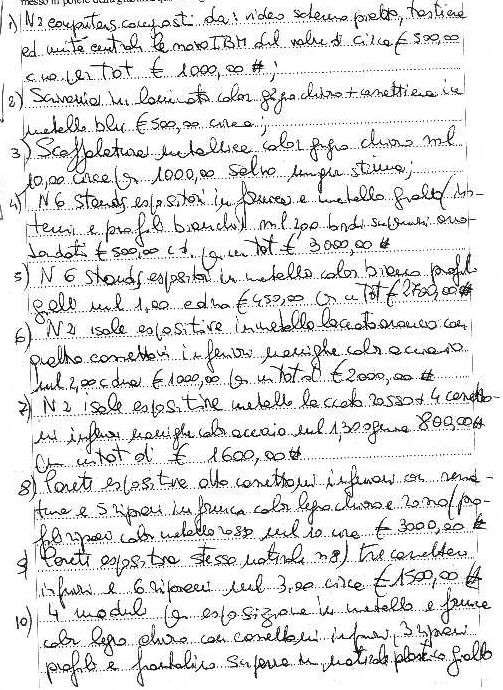 1) N 2 computers composti da: video schermo piatto, tastiera
ed unità centrale marca IBM del valore di circa € 500,00
c.uno per tot € 1000,00 #;
2) Scrivania in laminato color grigio chiaro + cassettiera in
metallo blu € 500,00 circa;
3) Scaffalatura metallica color grigio chiaro ml
10,00 circa € 1000,00 salvo miglior stima;
4) N 6 stands espositori in e metallo giallo
e profili bianchi ml 200 bordi superiori
€ 500,00 cd. per un tot € 3000,00 #
5) N 6 stands espositori in metallo color bianco profili
gialli ml 1,00 cadauno € 450,00 per un tot € 2700,00 #
6) N 2 isole espositive in metallo laccato arancio con
cassettoni inferiori maniglie color acciaio
ml 2,00 cduna € 1000,00 per un tot di € 2000,00 #
7) N 2 isole espositive metallo laccato rosso + 4 cassetto-
ni inferiori maniglie color acciaio ml 1,30 ognuna 800,00 #
per un tot di € 1600,00 #
8) Parete espositiva otto cassettoni inferiori con
e 5 ripiani in color legno chiaro e
fili ripiani color metallo rosso ml 10 circa € 3000,00 #
9) Parete espositiva stesso materiale n 8) tre cassettoni
inferiori e 6 ripiani ml 3,00 circa € 1500,00 #
10) 4 moduli per esposizione in metallo e
color legno chiaro con cassettoni inferiori, 3 ripiani
profili e frontalino superiore in materiale plastico giallo